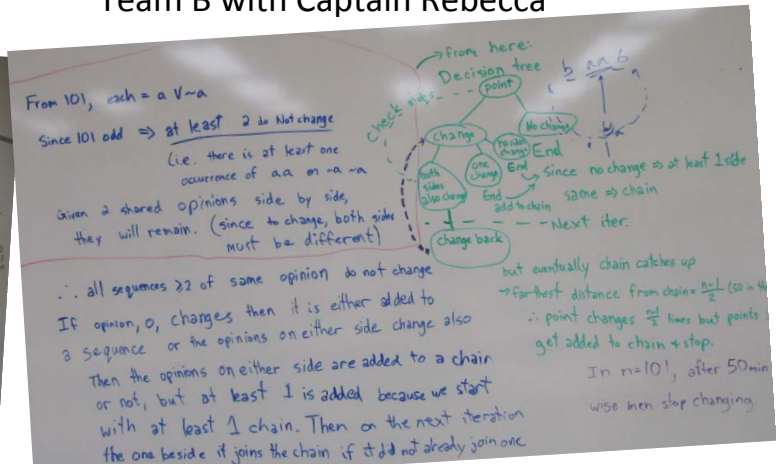 Team B with Captain Rebecca
From 101, each = a V ~a
Since 101 odd ⇒ at least 2 do Not change
(i.e. there is at least one
occurrence of aa or ~a ~a
Given 2 shared opinions side by side,
they will remain. (since to change, both sides
must be different)
∴ all sequences ≥2 of same opinion do not change
If opinion, o, changes then it is either added to
a sequence or the opinions on either side change also
Then the opinions on either side are added to a chain
or not, but at least 1 is added because we start
with at least 1 chain. Then on the next iteration
the one beside it joins the chain if it did not already join one
→ from here:
Decision tree
Check sides
point
change
No change
both sides also change
one change
no change
End
End
End
add to chain
since no change ⇒ at least 1 side
same ⇒ chain
Next iter.
change back
b aa b
but eventually chain catches up
→ farthest distance from chain = n-1/2 (so in
∴ point changes n-1/2 times but points
get added to chain & stop.
In n=101, after 50 min
wise men stop changing.